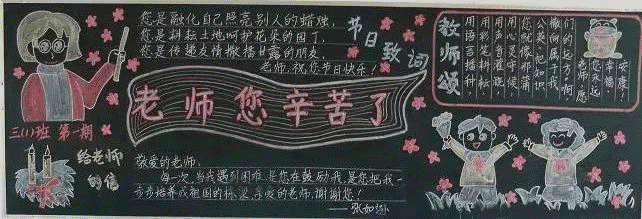 您是融化自己照亮别人的蜡烛,
您是耕耘土地,呵护花朵的园丁,
您是传递友情撒播甘露的朋友,
老师,祝您节日快乐!
节日致词
教师颂
用语言播种,
用彩笔耕耘,
用声音灌溉,
用心灵守候,
您就像那蒲
公英,把知识
撒向属于我
们的远方,啊,
老师,愿
您永远
幸福
安康!
老师您辛苦了
三(1)班 第一期
给老师
的信
敬爱的老师:
每一次,当我遇到困难,是您在鼓励我,是您把我一
步步培养成祖国的栋梁,亲爱的老师,谢谢您!